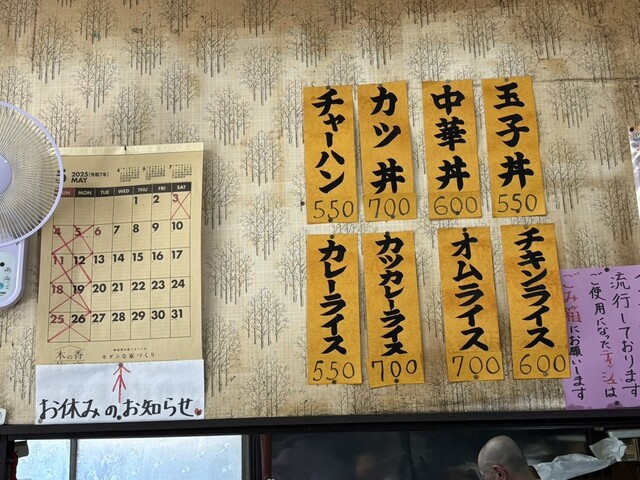 2025 [令和7年]
5 MAY
SUN MON TUE WED THU FRI SAT
1 2 3
4 5 6 7 8 9 10
11 12 13 14 15 16 17
18 19 20 21 22 23 24
25 26 27 28 29 30 31
木の香
モダンな家づくり
お休みのお知らせ
玉子丼
550
中華丼
600
カツ丼
700
チャーハン
550
チキンライス
600
オムライス
700
カツカレーライス
700
カレーライス
550
流行しております
ご使用になった
は
ごみ箱にお願いします